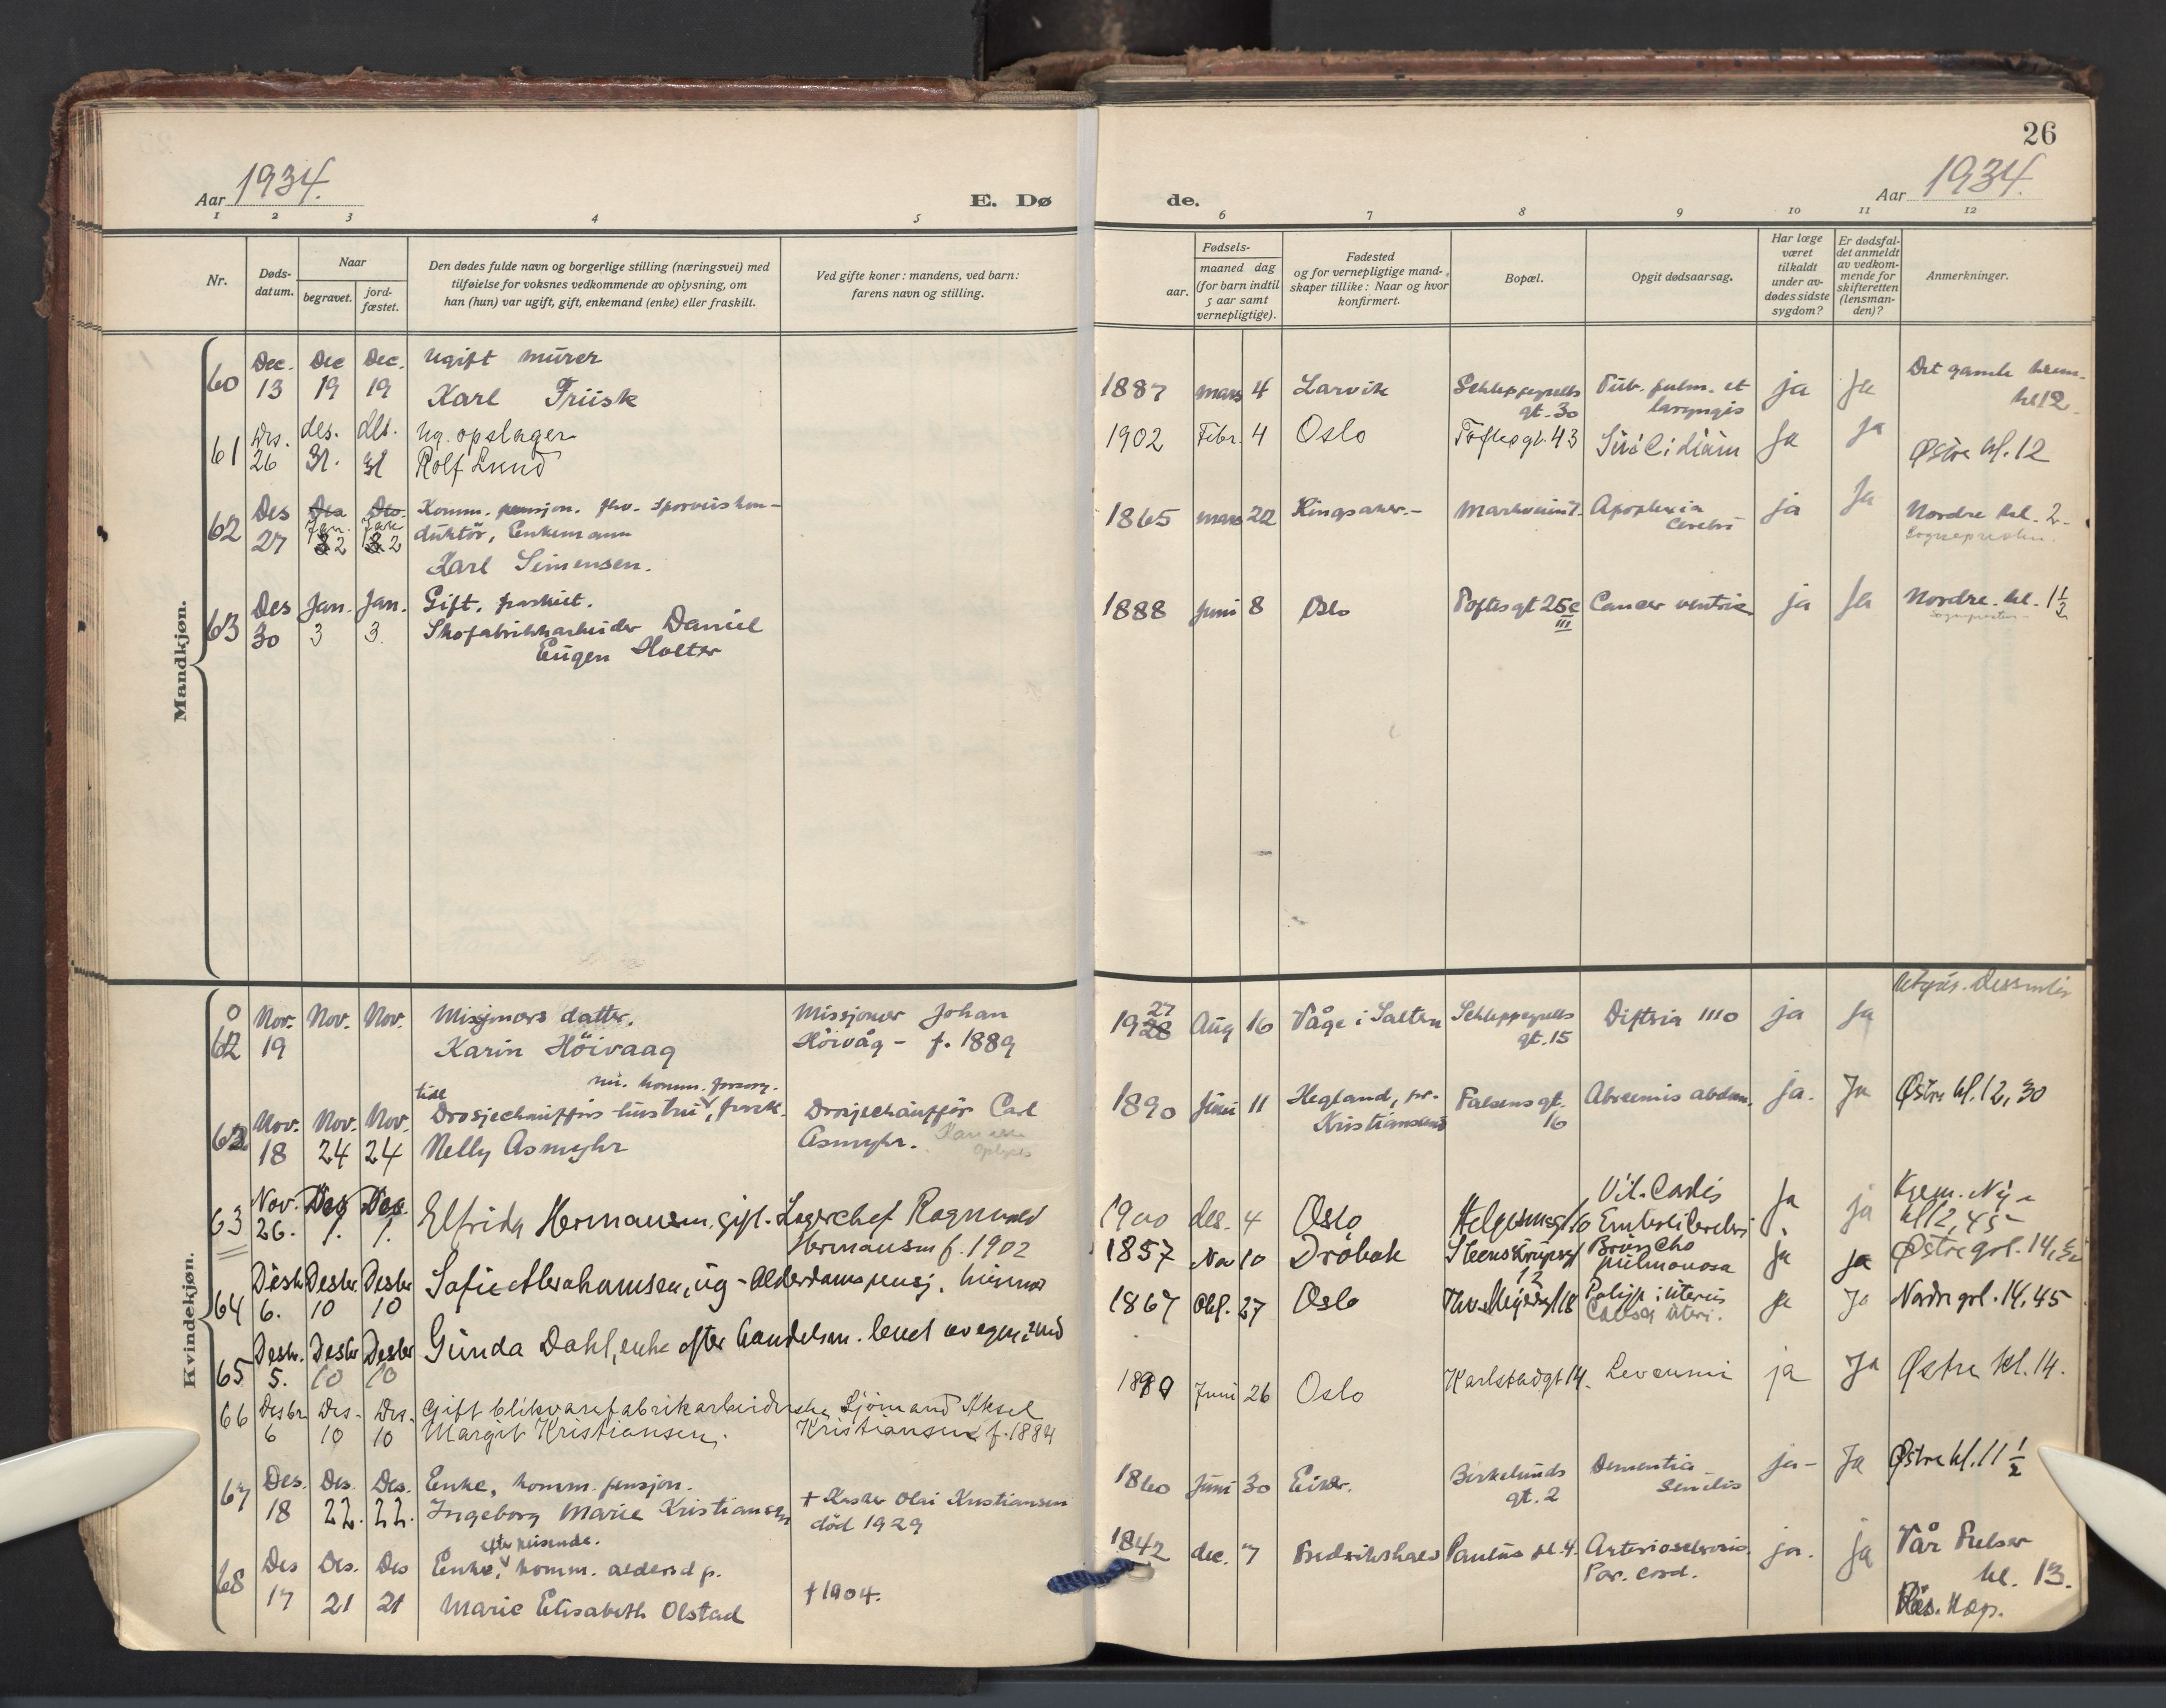 26
Aar 1934.
E. Dø
de.
Aar 1934.
1 2 3 4 5 6 7 8 9 10 11 12
Nr.
Døds-
datum.
Naar
begravet.
jord-
fæstet.
Den dødes fulde navn og borgerlige stilling (næringsvei) med
tilføielse for voksnes vedkommende av oplysning, om
han (hun) var ugift, gift, enkemand (enke) eller fraskilt.
Ved gifte koner: mandens, ved barn:
farens navn og stilling.
Fødsels-
aar.
maaned dag
(for barn indtil
5 aar samt
vernepligtige).
Fødested
og for vernepligtige mand-
skaper tillike: Naar og hvor
konfirmert.
Bopæl.
Opgit dødsaarsag.
Har læge
været
tilkaldt
under av-
dødes sidste
sygdom?
Er dødsfal-
det anmeldt
av vedkom-
mende for
skifteretten
(lensman-
den)?
Anmerkninger.
Mandkjøn.
60 Dec. 13 Dec 19 Dec. 19 Ugift murer
Karl Friisk
1887 mars 4 Larvik Schleppegrells gt. 30 Tub. pulm. et laryngis ja Ja Det gamle krem. kl 12
61 Des. 26 des. 31. des. 31 Ug. opslager
Rolf Lund
1902 Febr. 4 Oslo Toftesgt. 43 Suicidium Ja Ja Østre kl. 12
62 Des 27 Des Jan. 2 Des. Jan 2 Komm. pensjon. fhv. sporveiskon-
duktør, Enkemann
Karl Simensen.
1865 mars 22 Ringsaker. Markveien 7. Apoplexia Cerebri ja Ja Nordre kl. 2
Sognepresten.
63 Des 30 Jan. 3 Jan. 3. Gift, fraskilt.
Skofabrikkarbeider Daniel
Eugen Holter
1888 Juni 8 Oslo Toftesgt 25c III Cancer ventric ja Ja Nordre. kl. 1 1/2
Kvindekjøn.
0
62 Nov. 19 Nov. Nov. Misjonærs datter.
Karin Höivaag
Missjonær Johan
Höivåg - f. 1889
1927 Aug 16 Våge i Salten Schleppegrells gt. 15 Diftria 1110 ja Ja
62 Nov. 18 Nov. 24 Nov. 24 tidl Drosjechaufførs hustru, frask.
nu. komm. forsorg.
Nelly Asmyhr
Drosjechauffør Carl
Asmyhr.
1890 Juni 11 Hegland, pr. Kristiansand Falsens gt. 16 ja. Ja Østre kl. 12,30
63 Nov. 26. Des 1. Des. 1. Elfrida Hermansen, gift. Lagerchef Ragnvald
Hermansen f. 1902
1900 des. 4 Oslo Helgesensgt. Vit. Cordis Ja ja Krem. Ny
kl 12,45
64 Desbr 6. Desbr. 10 Desbr 10 Sofie Abrahamsen, ug - Alderdomspensj.
1857 Nov 10 Drøbak Steenstrupsgt 12 ja ja Østre grl. 14,
65 Desbr. 5. Desbr 10 Desbr 10 Gunda Dahl, enke efter handelsm.
1867 Okt. 27 Oslo Thv. Meyersgt 18 Polyp i uterus
Cancer uteri. ja Ja Nordre grl. 14,45
66 Desbr 6 Des. 10 Des. 10 Gift blikvarefabrikarbeiderske
Margit Kristiansen.
Sjømand Aksel
Kristiansen f. 1884
1890 Juni 26 Oslo Karlstadgt 14. Leucemi ja Ja Østre kl. 14.
67 Des. 18 Des. 22. Des. 22. Enke, komm. pensjon.
Ingeborg Marie Kristiansen
+ Kusker Olai Kristiansen
död 1929
1860 Juni 30 Eiker. Birkelunds gt. 2 Dementia Senilis ja- Ja Østre kl. 11 1/2
68 Des 17 Des. 21 Des 21 Enke, efter reisende. komm. aldersd p.
Marie Elisabeth Olstad
+ 1904.
1842 dec. 7 Fredrikshald Paulus pl. 4. Arteriosclerosis.
Par. cord. ja. ja Vår Frelser
kl. 13.
Res. Kap.